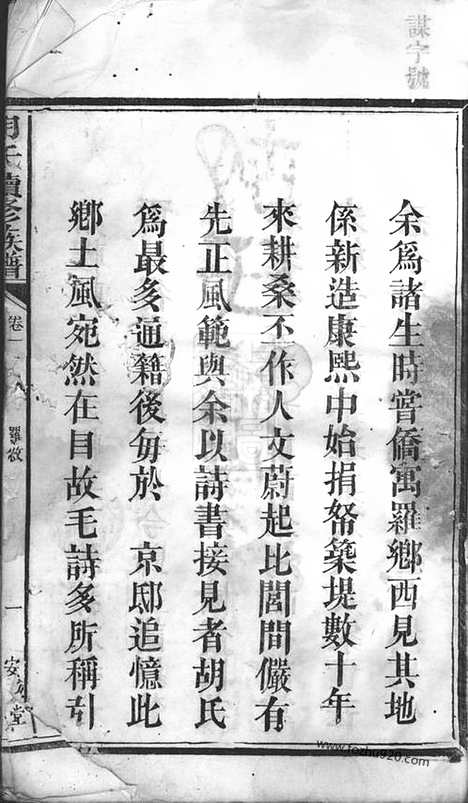 謀字號
余爲諸生時嘗僑寓羅鄉西見其地
係新造康熙中始捐帑築堤數十年
來耕桑不作人文蔚起比閭間儼有
先正風範與余以詩書接見者胡氏
爲最多通籍後每於 京邸追憶此
鄉土風宛然在目故毛詩多所稱引
胡氏續修族譜 卷一 羅敘 一 堂
www.fozhu920.com